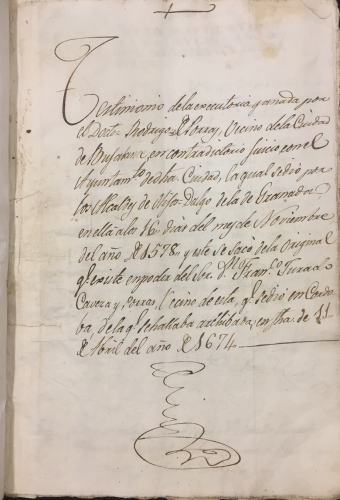 Testimonio de la executoria ganada por
el Doctor Rodrigo de Porras, Vecino de la Ciudad
de Bujalance, en contradictorio juicio con el
Ayuntamto de dha. Ciudad, la qual se dió por
los Alcaldes de Hijos-Dalgo de la de Granada,
en ella a los 16 dias del mes de Noviembre
del año de 1578, y este se sacó de la Original
qe existe en poder del Sor. Dn. Franco Jurado
Cavera y Porras, Vecino de esta, qe se dió en Cordo
ba, de la qe se hallaba archibada, en fha. de 11
de Abril del año de 1674